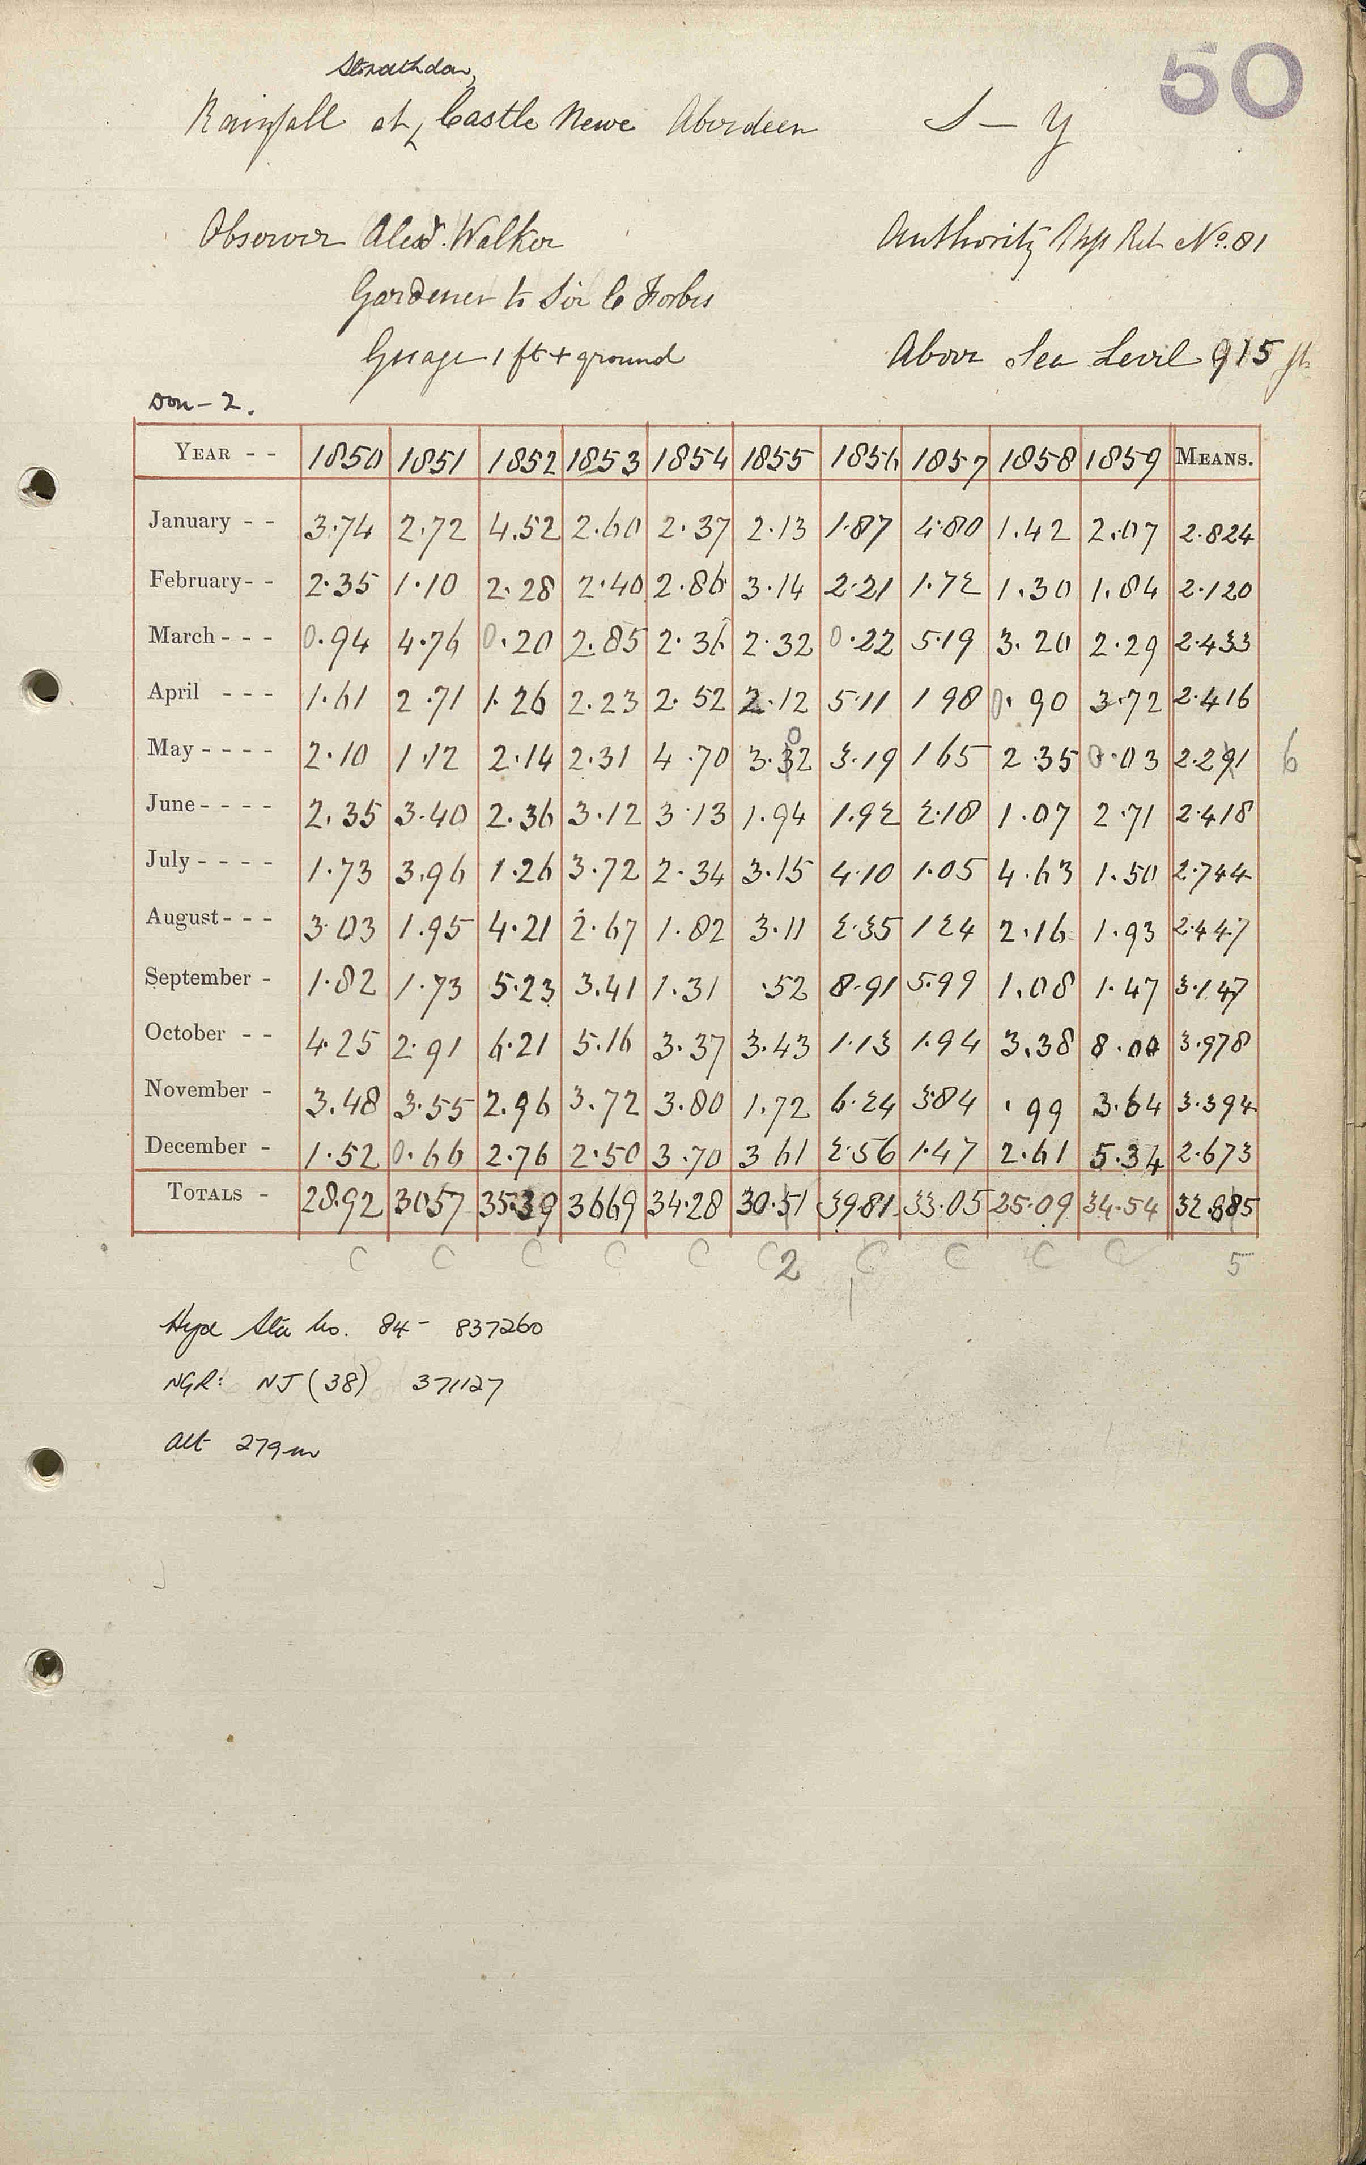 50
Strathdon,
Rainfall at Castle Newe Aberdeen S — Y
Observer Alexr. Walker Authority No. 81
Gardener to Sir C Forbes
Guage 1 ft + ground Above Sea Level 915 ft
Don - 2.
YEAR - - 1850 1851 1852 1853 1854 1855 1856 1857 1858 1859 MEANS.
January - - 3.74 2.72 4.52 2.60 2.37 2.13 1.87 4.80 1.42 2.07 2.824
February - - 2.35 1.10 2.28 2.40 2.86 3.14 2.21 1.72 1.30 1.84 2.120
March - - - 0.94 4.76 0.20 2.85 2.36 2.32 0.22 5.19 3.20 2.29 2.433
April - - - 1.61 2.71 1.26 2.23 2.52 2.12 5.11 1 98 0.90 3.72 2.416
0
May - - - - 2.10 1.12 2.14 2.31 4.70 3.32 3.19 1 65 2.35 0.03 2.291 6
June - - - - 2.35 3.40 2.36 3.12 3.13 1.94 1.92 2.18 1.07 2.71 2.418
July - - - - 1.73 3.96 1.26 3.72 2.34 3.15 4.10 1.05 4.63 1.50 2.744
August - - - 3.03 1.95 4.21 2.67 1.82 3.11 2.35 1 24 2.16 1.93 2.447
September - 1.82 1.73 5.23 3.41 1.31 .52 8.91 5.99 1.08 1.47 3.147
October - - 4.25 2.91 6.21 5.16 3.37 3.43 1.13 1.94 3.38 8.00 3.978
November - 3.48 3.55 2.96 3.72 3.80 1.72 6.24 3.84 .99 3.64 3.394
December - 1.52 0.66 2.76 2.50 3.70 3 61 2.56 1.47 2.61 5.34 2.673
TOTALS - 28.92 3057 35.39 3669 34.28 30.51 39.81 33.05 25.09 34.54 32.885
C C C C C C 2 C C C C 5
Hyd Sta No. 84 - 837260
NGR: NJ (38) 371127
Alt 279m